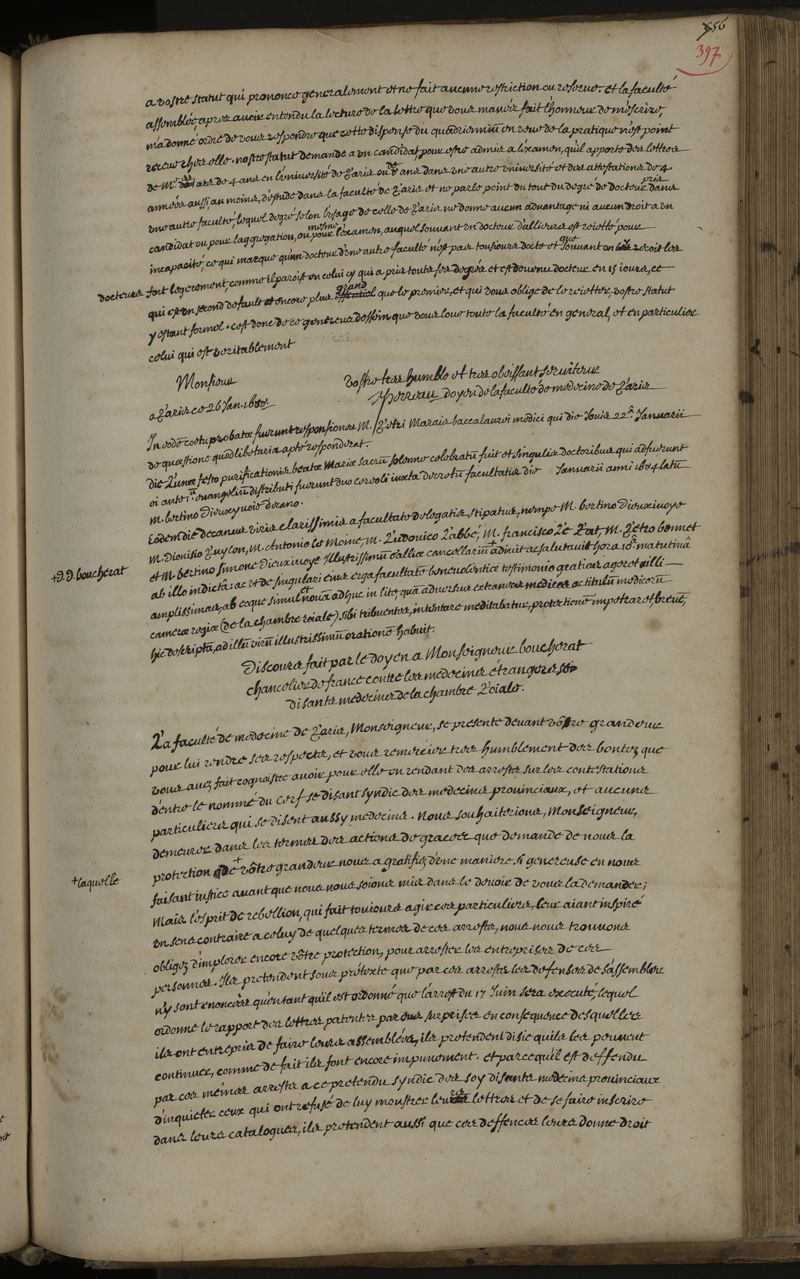 356
397
a vostre statut qui prononce generalement et ne fait aucune restriction ou reserve. et la faculté
assemblée, apres avoir entendu la lecture de la lettre que vous m'avés fait l'honneur de m'escrire,
m'a donné ordre de vous respondre que cette dispense du quadriennium en veue de la pratique n'est point
receue chez elle. nostre statut demande a un candidat pour estre admis a l'examen, qu'il apporte des lettres
de Me es arts de 4 ans en l'université de Paris ou de 8 ans dans une autre université et des attestations de 4
années aussi au moins, d'estude dans la faculté de Paris et ne parle point du tout du degré de docteur pris dans
une autre faculté, lequel degré selon l'usage de celle de Paris ne donne aucun advantage ni aucun droit a un
candidat ou pour l'aggregation, ou mesme pour l'examen, auquel souvent un docteur d'ailleurs est rejetté pour
incapacité, ce qui marque qu'un docteur d'une autre faculté n'est pas tousjours docte et que souvent on recoit les
docteurs fort legerement comme il paroist en celui cy qui a pris touts ses degrés et est devenu docteur en 15 jours, et
qui est un second default et encore plus grand que le premier, et qui vous oblige de le rejetter, vostre statut
y estant formel. c'est donc de ce genereux dessein que vous loue toute la faculté en general, et en particulier
celui qui est veritablement
Monsieur
Vostre tres humble et tres obeissant serviteur
Perreau doyen de la faculté de medecine de Paris
a Paris ce 26 Jan. 1688.
In eodem coetu probatae fuerunt responsiones M. Petri Marais baccalaurei medici qui die Jovis 22a Januarii
de quaestione quodlibetaria apte responderat.
die Lunae festo purificationis beatae Mariae sacrum solenne celebratum fuit et singulis doctoribus qui adfuerunt
ei ante evangelium distributi fuerunt duo cereoli juxta decretum facultatis die Januarii anni 1684 latum
M. bertino Dieuxyvoie decano.
Eodem die decanus viris clarissimis a facultate delegatis stipatus, nempe M. bertino Dieuxivoye
M. Dionisio Puylon, M. Antonio le Moine, M. Ludovico Labbé, M. francisco Le Rat, M. Petro bonnet
et M. bertino Simone Dieuxivoye Illustrissimum Galliae cancellarium + adivit ac salutavit hora 10a matutina
+ D.D. boucherat
ab illo indicta: ac et de singulari eius erga facultatem benevolentiae testimonio gratias ageret illi
amplissimas, ab eoque simul et novam adhuc in lite, qua adversus extraneos medicos ac titulum medicorum
camerae regiae (de la chambre roiale) sibi tribuentes, intentare meditabatur, protectionem impetraret breve,
hic descriptam, ad illum virum illustrissimum orationem habuit.
Discours fait par le doyen a Monseigneur boucherat
chancelier de france contre les medecins étrangers se
disants medecins de la chambre Roiale.
La faculté de medecine de Paris, Monseigneur, se présente devant vôtre grandeur
pour lui rendre ses respects, et vous remercier tres humblement des bontez que
vous avez fait cognoistre avoir pour elle en rendant des arrests sur les contestations
d'entre le nommé du Cerf se disant syndic des medecins provinciaux, et aucuns
particuliers qui se disent aussy medecins. Nous souhaiterions, Monseigneur,
demeurer dans les termes des actions de graces que demande de nous la
protection + de vôtre grandeur nous a gratifiez d'une maniere si genereuse en nous
+ laquelle
faisant justice avant que nous nous soions mis dans le devoir de vous la demander;
Mais l'esprit de rebellion, qui fait toujours agir ces particuliers, leur aiant inspiré
un sens contraire a celuy de quelques termes de ces arrests, nous nous trouvons
obligez d'implorer encore vôtre protection, pour arrester les entreprises de ces
personnes. Ils pretendent sous prétexte que par ces arrests les defenses de s'assembler
n'y sont enoncées qu'entant qu'il est ordonné que l'arrest du 17 Juin sera executé, lequel
ordonne le rapport des lettres patentes par eux surprises en consequence desquelles
ils ont entrepris de faire leurs assemblées, ils pretendent dis-je qu'ils les peuvent
continuer, comme de fait ils font encore impunement. et parcequ'il est deffendu
par ces mémes arrests a ce pretendu syndic des soy disants medecins provinciaux
d'inquieter ceux qui ont refusé de luy monstrer leurs lettres et de se faire inscrire
dans leurs catalogues, ils pretendent aussi que ces deffences leurs donne droit